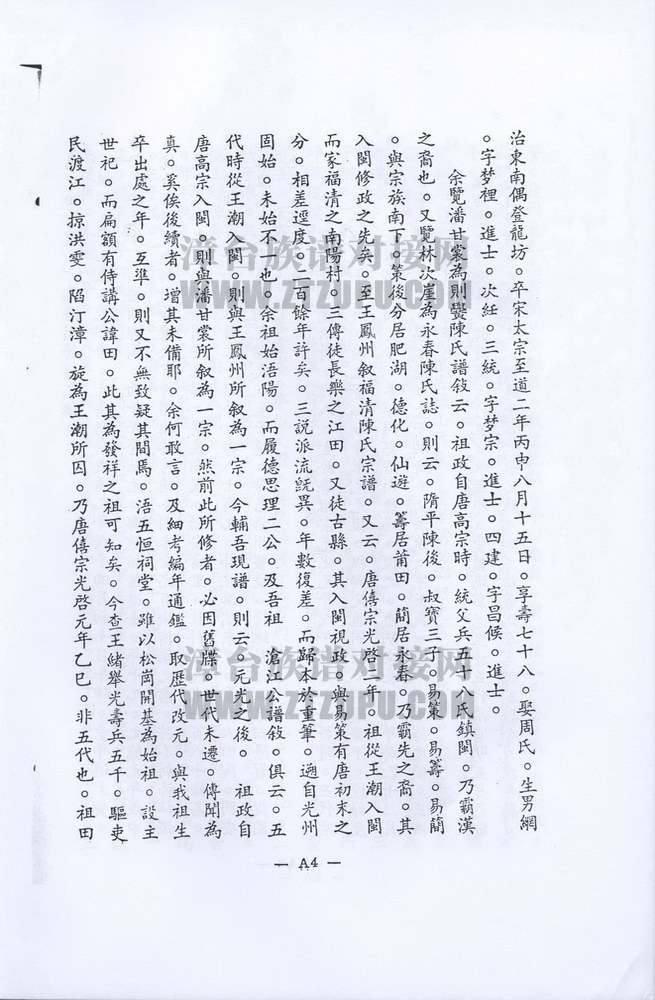 治東南偶登龍坊。卒宋太宗至道二年丙申八月十五日。享壽七十八。娶周氏。生男綱
。字梦裡。進士。次紝。三統。字梦宗。進士。四建。字昌候。進士。
余覽潘甘裳為則爕陳氏譜敍云。祖政自唐高宗時。統父兵五十八氏鎮閩。乃霸漢
之裔也。又覽林次崖為永春陳氏誌。則云。隋平陳後。叔寶三子。易策。易籌。易簡
。與宗族南下。策後分居肥湖。德化。仙遊。籌居莆田。簡居永春。乃霸先之裔。其
入閩修政之先矣。至王鳳州叙福清陳氏宗譜。又云。唐僖宗光啓二年。祖從王潮入閩
而家福清之南陽村。三傳徒長樂之江田。又徒古縣。其入閩視政。與易策有唐初末之
分。相差逕度。二百餘年許矣。三説派流既異。年數復差。而歸本於重筆。遡自光州
固始。未始不一也。余祖始浯陽。而履德思理二公。及吾祖 滄江公譜敍。俱云。五
代時從王潮入閩。則與王鳳州所叙為一宗。今輔吾現譜。則云。元光之後。 祖政自
唐高宗入閩。則與潘甘裳所叙為一宗。然前此所修者。必因舊牒。世代未遷。傳聞為
真。奚俟後續者。增其未備耶。余何敢言。及細考編年通鑑。取歷代改元。與我祖生
卒出處之年。互準。則又不無致疑其間焉。浯五恒祠堂。雖以松崗開基為始祖。設主
世祀。而扁額有侍講公諱田。此其為發祥之祖可知矣。今查王緒舉光壽兵五千。驅吏
民渡江。掠洪雯。陷汀漳。旋為王潮所囚。乃唐僖宗光啓元年乙巳。非五代也。祖田
— A4 —
漳台族谱对接网
WWW.ZTZUPU.COM
漳台族谱对接网
WWW.ZTZUPU.COM